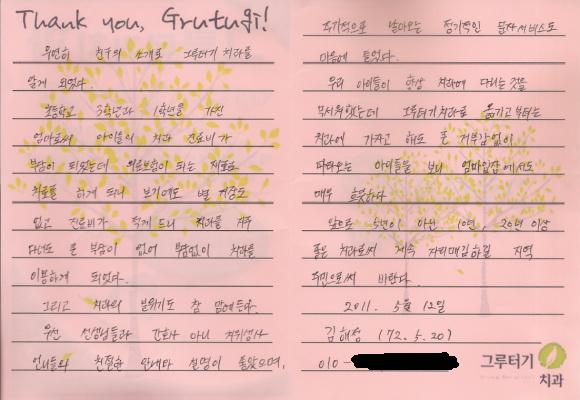 Thank you, Grutugi!
우연히 친구의 소개로 그루터기 치과를
알게 되었다.
초등학교 3학년과 1학년을 가진
엄마로써 아이들의 치과 진료비가
부담이 되었는데 의료보험이 되는 재료로
치료를 하게 되니 보기에도 별 지장도
없고 진료비가 적게 드니 치과를 자주
다녀도 큰 부담이 없어 부담없이 치과를
이용하게 되었다.
그리고 치과의 분위기도 참 맘에든다.
우선 선생님들과 간호사 아니 치위생사
언니들의 친절한 안내와 설명이 좋았으며,
주기적으로 날아오는 정기적인 문자서비스도
마음에 들었다.
우리 아이들이 항상 치과에 다니는 것을
무서워했는데 그루터기치과로 옮기고부터는
치과에 가자고 해도 큰 거부감없이
따라오는 아이들을 보니 엄마입장에서도
매우 흐뭇하다
앞으로 5년이 아닌 10년, 20년 이상
좋은 치과로써 계속 자리매김하길 지역
주민으로써 바란다.
2011. 5월 12일
김해성 (72. 5. 20)
010-
그루터기
치과